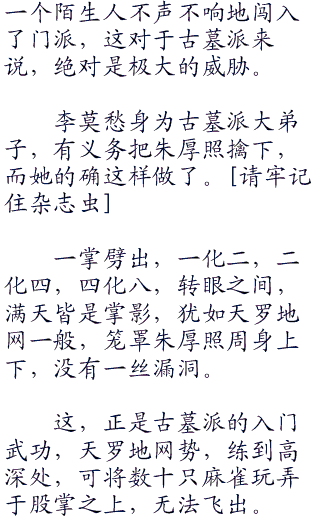 一个陌生人不声不响地闯入
了门派，这对于古墓派来
说，绝对是极大的威胁。
李莫愁身为古墓派大弟
子，有义务把朱厚照擒下，
而她的确这样做了。[请牢记
住杂志虫]
一掌劈出，一化二，二
化四，四化八，转眼之间，
满天皆是掌影，犹如天罗地
网一般，笼罩朱厚照周身上
下，没有一丝漏洞。
这，正是古墓派的入门
武功，天罗地网势，练到高
深处，可将数十只麻雀玩弄
于股掌之上，无法飞出。